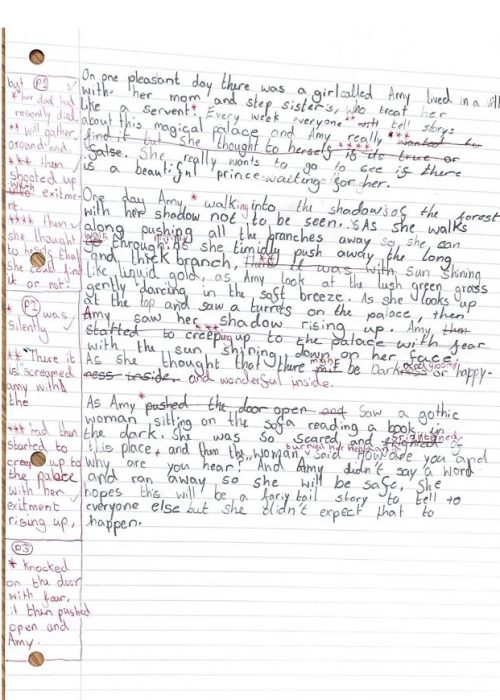 On one pleasant day there was a girl called Amy lived in a vill
with her mom and step sister's, who treat her
like a servant. Every week everyone ** tell storys
about this magical palace and Amy really *** wanted her
find it but she thought to herself **** is its true or
false. She really wants to go to see is there
is a beautiful prince waiting for her.
One day Amy * walking into the shadows of the forest
with her shadow not to be seen. As she walks
along pushing all the branches away so she can
walk through as she timidly push away the long
and thick branch, It was with sun shining
like liquid gold, as Amy look at the lush green grass
gently dancing in the soft breeze. As she looks up
at the top and saw a turrets on the palace, then
Amy saw her shadow rising up. Amy then
started to creep up to the palace with fear
with the sun shining down on her face.
As she thought that there might be Dark and gloomy or happy-
ness inside. and wonderful inside.
As Amy * pushed the door open and saw a gothic
woman sitting on the sofa reading a book in
the dark. She was so scared and frightened of
this place, and then the woman turned her head and said How are you and
why are you hear? And Amy didn't say a word
and ran away so she will be safe. She
hopes this will be a fariy tail story to tell to
everyone else but she didn't expect that to
happen.
but P1
* her dad had
resently died.
** will gather
around and
*** then
shooted up
with exitme-
nt
**** then
she thought
to herself that
she could find
it or not.
P2 was
silently
** "There it
is" screamed
amy with
the
*** had then
started to
creep up to
the palace
with her
exitment
rising up,
P3
* knocked
on the door
with fear,
it then pushed
open and
Amy.